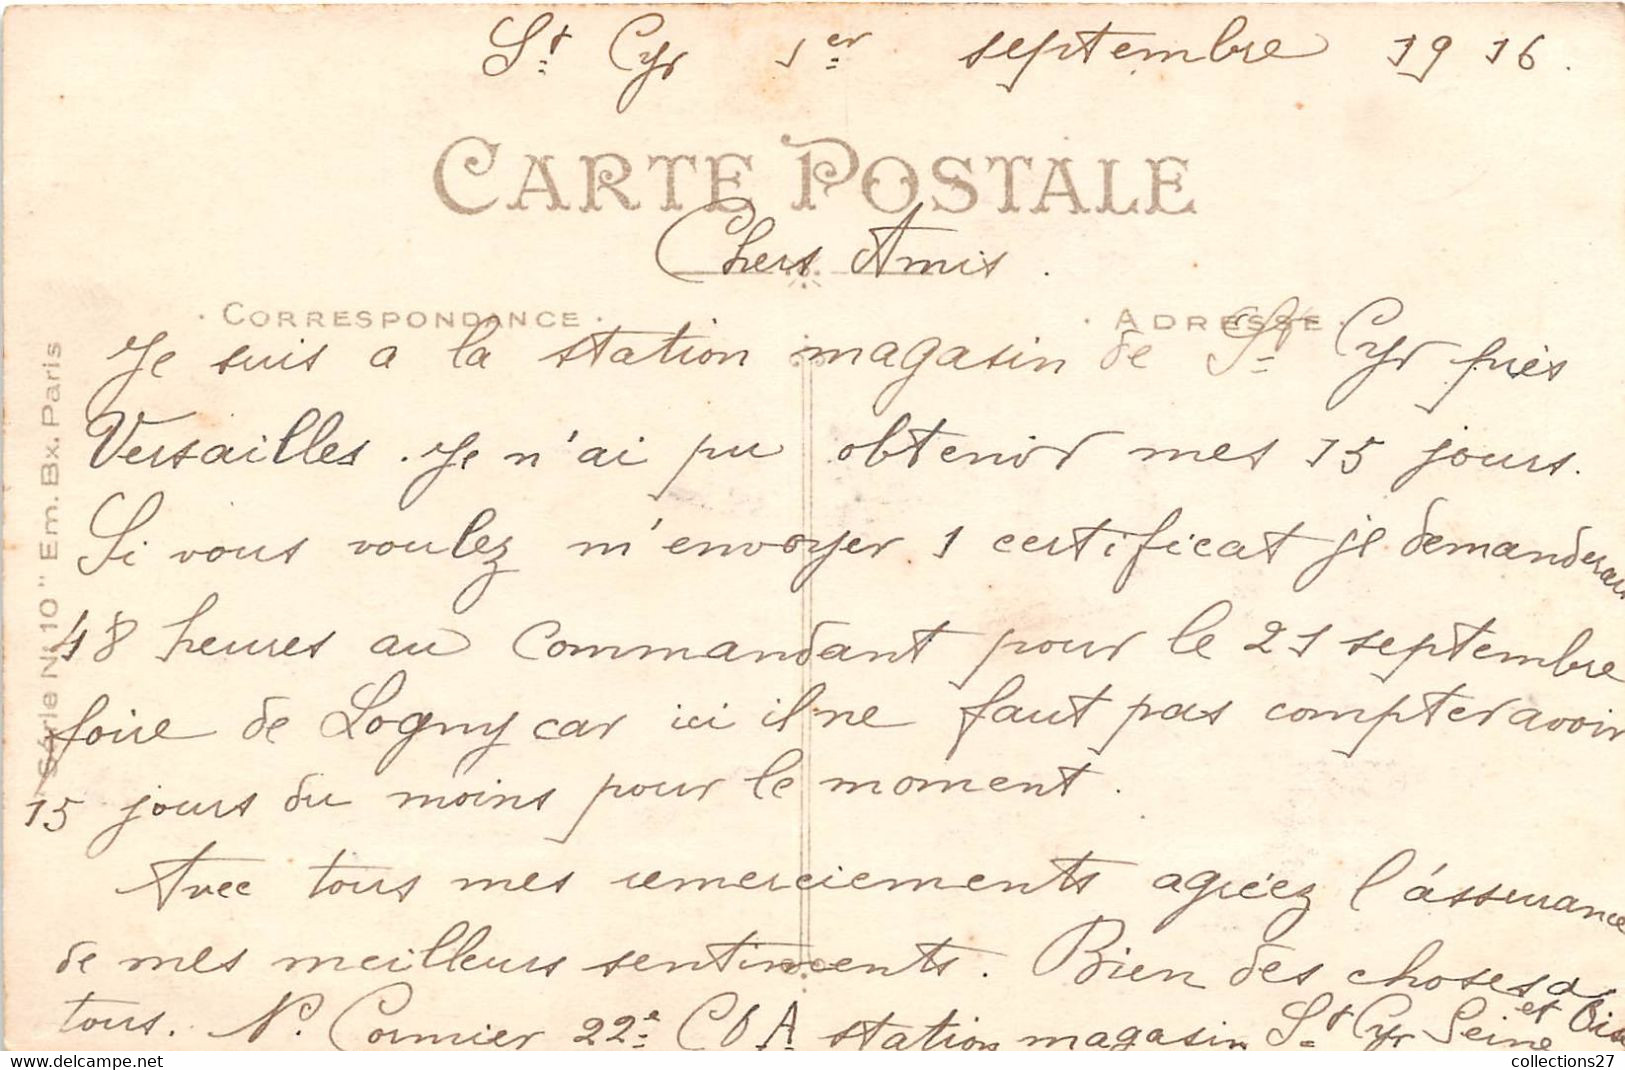 St Cyr 1er septembre 1916.
CARTE POSTALE
Chers Amis.
· CORRESPONDANCE · · ADRESSE ·
Je suis a la station magasin de St Cyr près
Versailles. Je n'ai pu obtenir mes 15 jours.
Si vous voulez m'envoyer 1 certificat je demanderai
48 heures au Commandant pour le 21 septembre
foire de Logny car ici il ne faut pas compter avoir
15 jours du moins pour le moment.
Avec tous mes remerciements agréez l'assurance
de mes meilleurs sentiments. Bien des choses a
tous. N. Cormier 22e COA station magasin St Cyr Seine et Oise
Série No 10" Em. Bx. Paris
delcampe.net
collections27